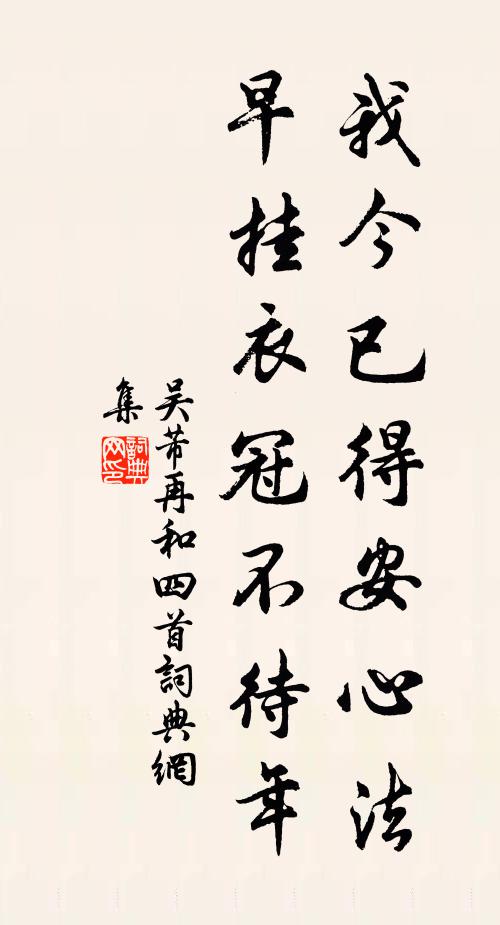 我今已得安心法
早挂衣冠不待年
吴芾再和四首詞典網
集
詞典
网印